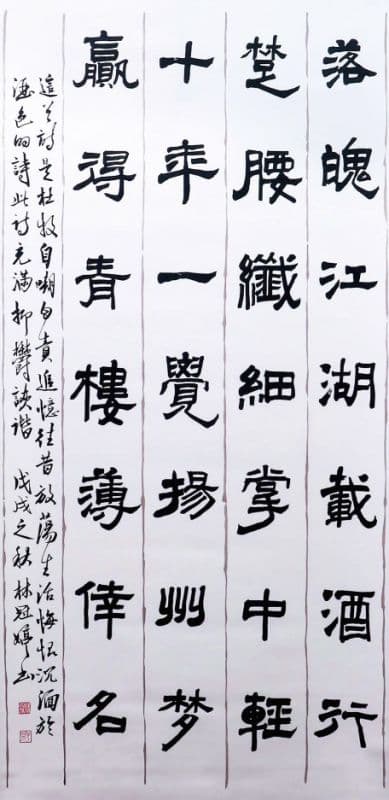 落魄江湖載酒行
楚腰纖細掌中輕
十年一覺揚州梦
贏得青樓薄倖名
這首詩是杜牧自嘲自責追憶往昔放蕩生活悔恨沉湎於
酒色的詩此詩充滿抑鬱詼谐 戊戌之秋林冠婷书